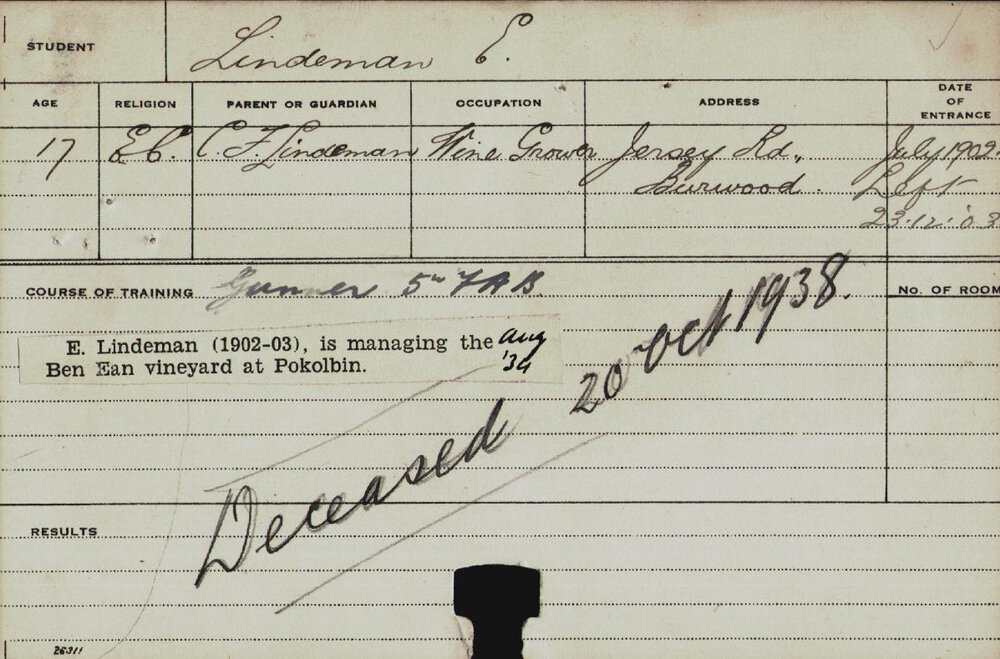 STUDENT Lindeman E.
AGE RELIGION PARENT OR GUARDIAN OCCUPATION ADDRESS DATE OF ENTRANCE
17 E.C. C. F. Lindeman Wine Grower Jersey Rd., July 1902.
Burwood. Left
23.12.'03
COURSE OF TRAINING Gunner 5th F A B. No. OF ROOM
E. Lindeman (1902-03), is managing the Aug
Ben Ean vineyard at Pokolbin. '34
Deceased 20 Oct 1938.
RESULTS
26311